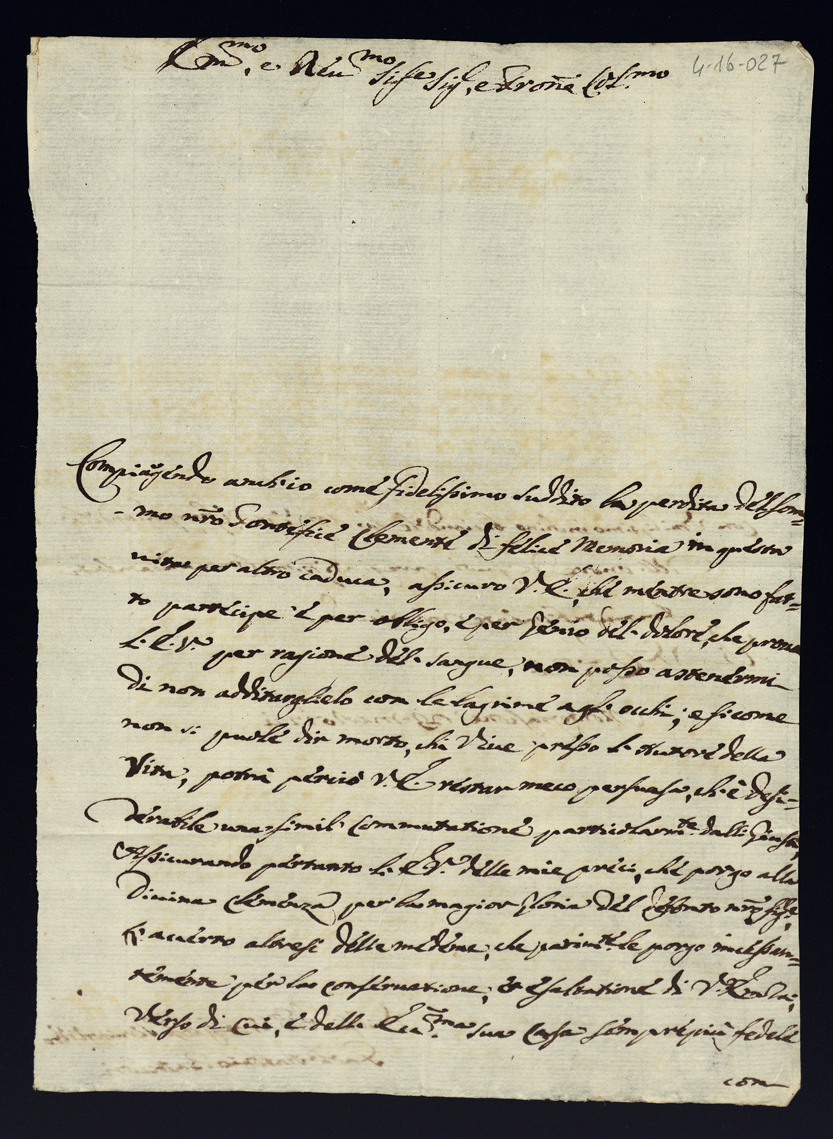 Em.mo, e Reu.mo Sig.re Sig.r, e Prone Col.mo
4-16-027
Compiagendo anch'io come fidelissimo suddito la perdita del som-
-mo nro Pontefice Clemente di felice Memoria in questa
uita per altro caduca, assicuro V.E., che mentre sono fat-
to partecipe è per obligo, è per genio del dolore, che proua
l'E.V. per ragione del sangue, non posso astenermi
di non additarglielo con le lagrime agl'occhi; e sicome
non si puole dir morto, chi Viue presso l'Autore della
Vita, potrà perciò V.E. restar meco persuasa, ch'è desi-
derabile una simil commutatione particolarm.te dalli Giusti,
Assicurando pertanto l'E.V. delle mie preci, che porgo alla
Diuina Clemenza per la magior gloria del defonto nro
l'accerto altresi delle medeme, che parim.te le porgo incessan-
temente per la conseruatione, et esaltatione di V. Em.za,
Verso di cui, è della Em.ma sua Casa sempre più fedele
con